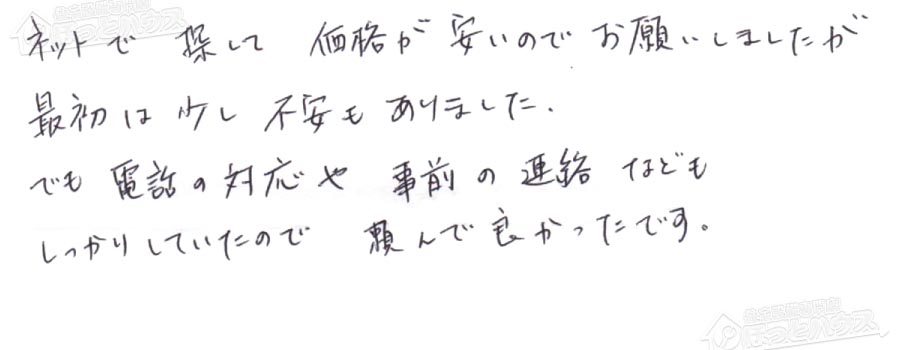 ネットで 探して 価格が 安いので お願いしましたが
最初は 少し 不安も ありました.
でも 電話の対応や 事前の連絡 なども
しっかりしていたので 頼んで良かったです。
ほっとハウス